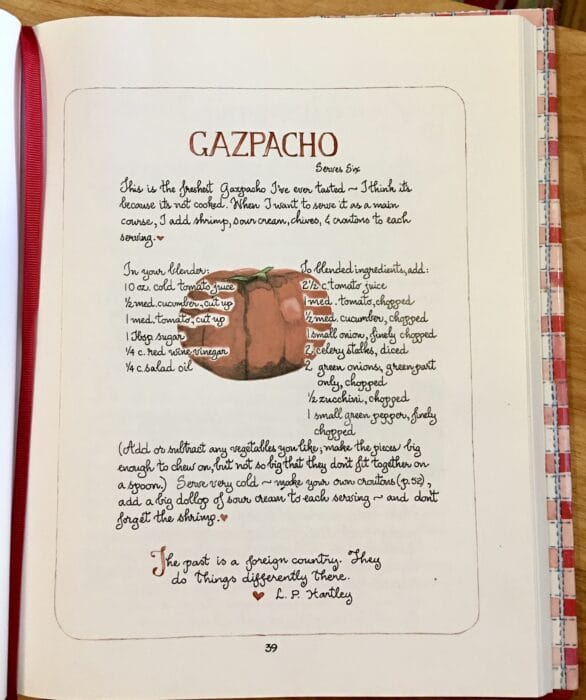 GAZPACHO
Serves Six
This is the freshest Gazpacho I've ever tasted ~ I think its
because its not cooked. When I want to serve it as a main
course, I add shrimp, sour cream, chives, & croutons to each
serving. ♥
In your blender:
10 oz. cold tomato juice
½ med. cucumber, cut up
1 med. tomato, cut up
1 Tbsp. sugar
¼ c. red wine vinegar
¼ c. salad oil
To blended ingredients, add:
2½ c. tomato juice
1 med. tomato, chopped
½ med. cucumber, chopped
1 small onion, finely chopped
2 celery stalks, diced
2 green onions, green part
only, chopped
½ zucchini, chopped
1 small green pepper, finely
chopped
(Add or subtract any vegetables you like; make the pieces big
enough to chew on, but not so big that they don't fit together on
a spoon.) Serve very cold ~ make your own croutons (p. 52),
add a big dollop of sour cream to each serving ~ and don't
forget the shrimp. ♥
The past is a foreign country. They
do things differently there.
♥ L. P. Hartley
39